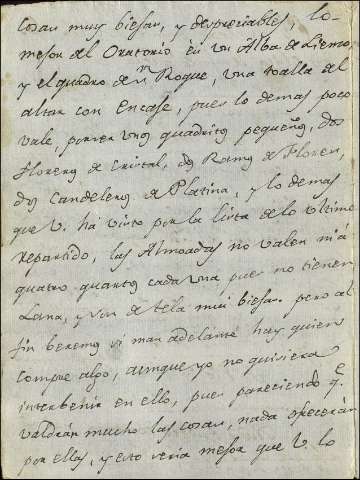 cosas muy biejas, y despreciables, lo
mejor del Oratorio es un Alba de Lienzo,
y el quadro de Sn Roque, una toalla al
altar con Encaje, pues lo demas poco
vale, por ser unos quadritos pequeños, dos
floreros de Cristal, dos Ramos de Flores,
dos Candeleros de Platina, y lo demas
que V. há visto por la lista de lo ultimo
repartido, las Almoadas no valen ni á
quatro quartos cada una pues no tienen
Lana, y son de tela mui biejas. pero al
fin beremos si mas adelante hay quien
compre algo, aunque yo no quisiera
interbenir en ello, pues pareciendo qe
valdrán mucho las cosas, nada ofrecerán
por ellas, y esto seria mejor que V. lo